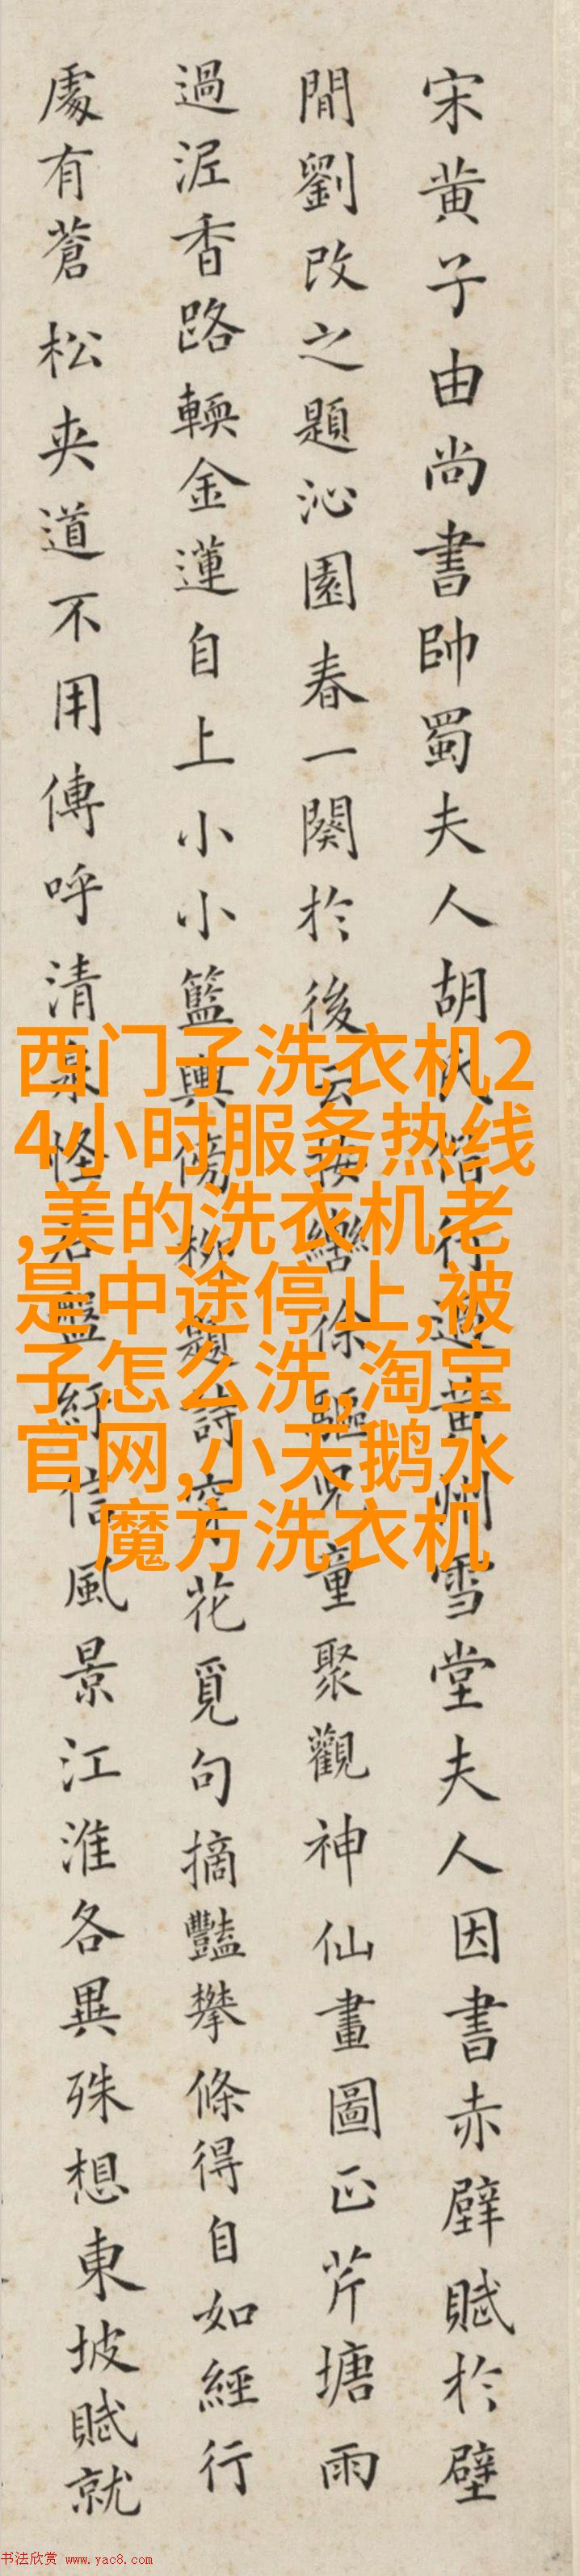 宋黄子由尚書帥蜀夫人胡氏偕行過黄州雪堂夫人因書赤壁賦於壁
間劉改之題沁園春一闋於後云按轡徐驅兒童聚觀神仙畫圖正芹塘雨
過泥香路輭金蓮自上小小籃輿傍柳題詩穿花覓句摘豔攀條得自如經行
處有蒼松夾道不用傳呼清泉怪石盤紆信風景江淮各異殊想東坡賦就
西门子洗衣机2
4小时服务热线
,美的洗衣机老
是中途停止,被
子怎么洗,淘宝
官网,小天鹅水
魔方洗衣机
书法欣赏 www.yac8.com